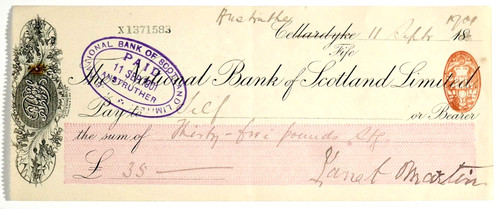 X1371583
Anstruther
Cellardyke 11 Septr 1901
Fife
NATIONAL BANK OF SCOTLAND LIMITED
PAID
11 SEP 1901
ANSTRUTHER
The National Bank of Scotland Limited
Pay to Self or Bearer
the sum of Thirty-five pounds Stg
£ 35 —
Janet Martin